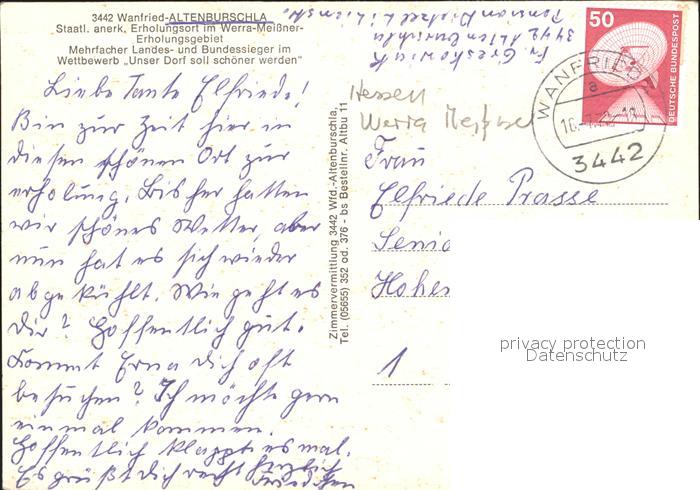 3442 Wanfried-ALTENBURSCHLA
Staatl. anerk. Erholungsort im Werra-Meißner-
Erholungsgebiet
Mehrfacher Landes- und Bundessieger im
Wettbewerb „Unser Dorf soll schöner werden"
Liebe Tante Elfriede!
Bin zur Zeit hier in
diesen schönen Ort zur
erholung. Bis her hatten
wir schönes Wetter, aber
nun hat es sich wieder
abgekühlt. Wie geht es
Dir? Hoffentlich gut.
Kommt Erna dich oft
besuchen? Ich möchte gern
einmal kommen.
Hoffentlich klappt es mal.
Es grüßt dich recht herzlich
Friedchen
Zimmervermittlung 3442 Wfd.-Altenburschla,
Tel. (05655) 352 od. 376 - bs Bestellnr. Altbu 11
Pension
3442 Altenburschla
Fr.
50
DEUTSCHE BUNDESPOST
WANFRIED
a
3442
Hessen
Werra Meißner
Frau
Elfriede Prasse
Senio
Hohen
1
privacy protection
Datenschutz